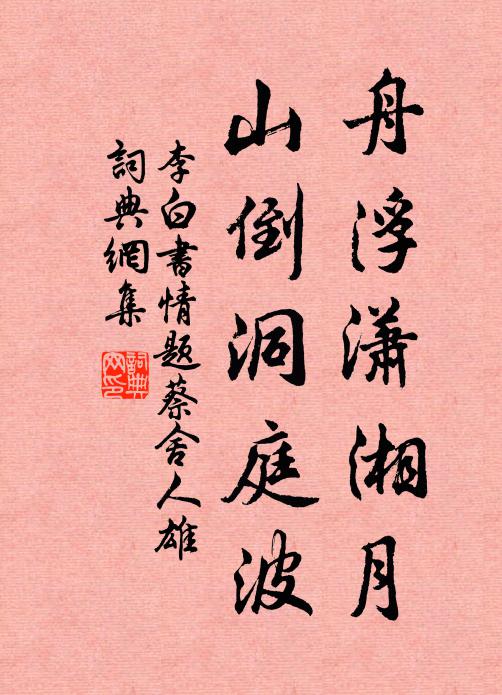 舟浮瀟湘月
山倒洞庭波
李白書情題蔡舍人雄
詞典網集
詞典網印